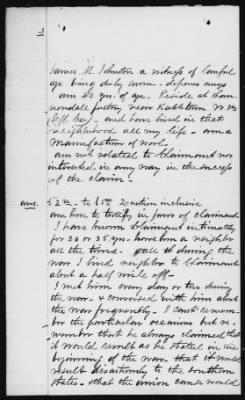 3
James M. Johnston a witness of lawful
age being duly sworn. deposes says
am 50 yrs. of age. Reside at
factory near Kabletown W. Va
(Jeff. Co.) - and have lived in that
neighborhood all my life - am a
manufacturer of wool.
am not related to claimant nor
interested in any way in the success
of the claim.
ans. 52nd - to question inclusive
am here to testify in favor of claimant
I have known claimant intimately
for 30 or 35 yrs - have been a neighbor
all the time - and during the
war I lived neighbor to claimant
about a half mile off -
I met him every day or two during
the war - & conversed with him about
the war frequently. I cant remem-
ber the particular occasions but re-
member that he always claimed that
it would result as he stated in the
beginning of the war - that it would
result disastrously to the southern
states. - that the union cause would